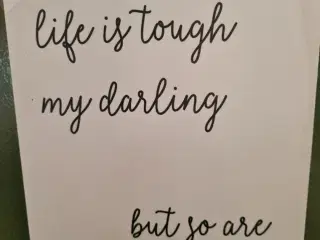 life is tough
my darling
but so are